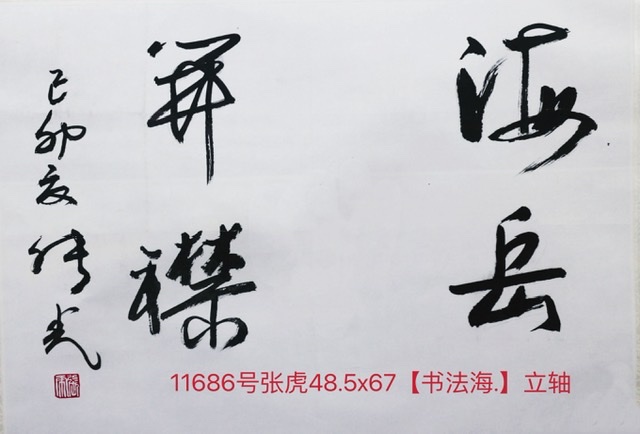 海岳
開襟
己卯夏
11686号张虎48.5x67【书法海.】立轴